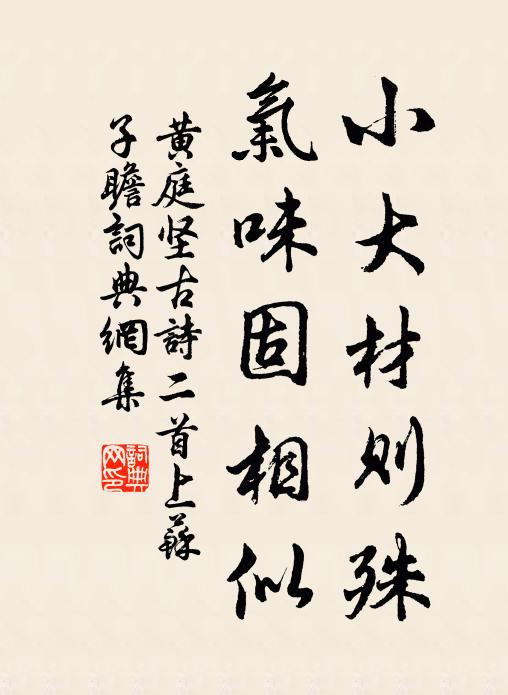 小大材则殊
氣味固相似
黄庭坚古詩二首上蘇
子瞻詞典網集
詞典
网印